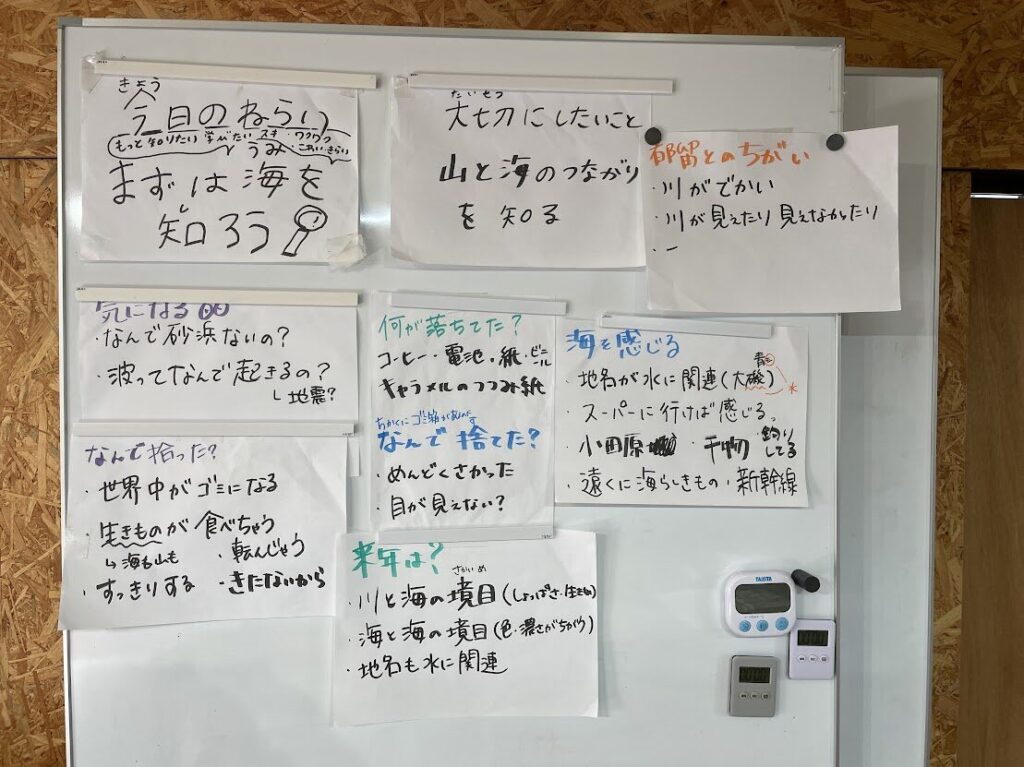 きょう
今日のねらい
もっと知りたい 学びたい スキ・ワクワク
うみ ・こわい・きらい
まずは海を
し
知ろう
たいせつ
大切にしたいこと
山と海のつながり
を知る
都留とのちがい
・川がでかい
・川が見えたり見えなかったり
・ー
気になる
・なんで砂浜ないの?
・波ってなんで起きるの?
↳地震?
何が落ちてた?
コーヒー・電池・紙・ビニール
キャラメルのつつみ紙
ちかくにゴミ箱が
なんで捨てた?
・めんどくさかった
・目が見えない?
海を感じる
・地名が水に関連(大磯)
・スーパーに行けば感じる。
・小田原 ・干物 ・釣りしてる
・遠くに海らしきもの・新幹線
なんで拾った?
・世界中がゴミになる
・生きものが食べちゃう
↳海も山も ・転んじゃう
・すっきりする ・きたないから
来年は?
さかいめ
・川と海の境目(しょっぱさ・生きもの)
・海と海の境目(色・濃さがちがう)
・地名も水に関連
TANITA